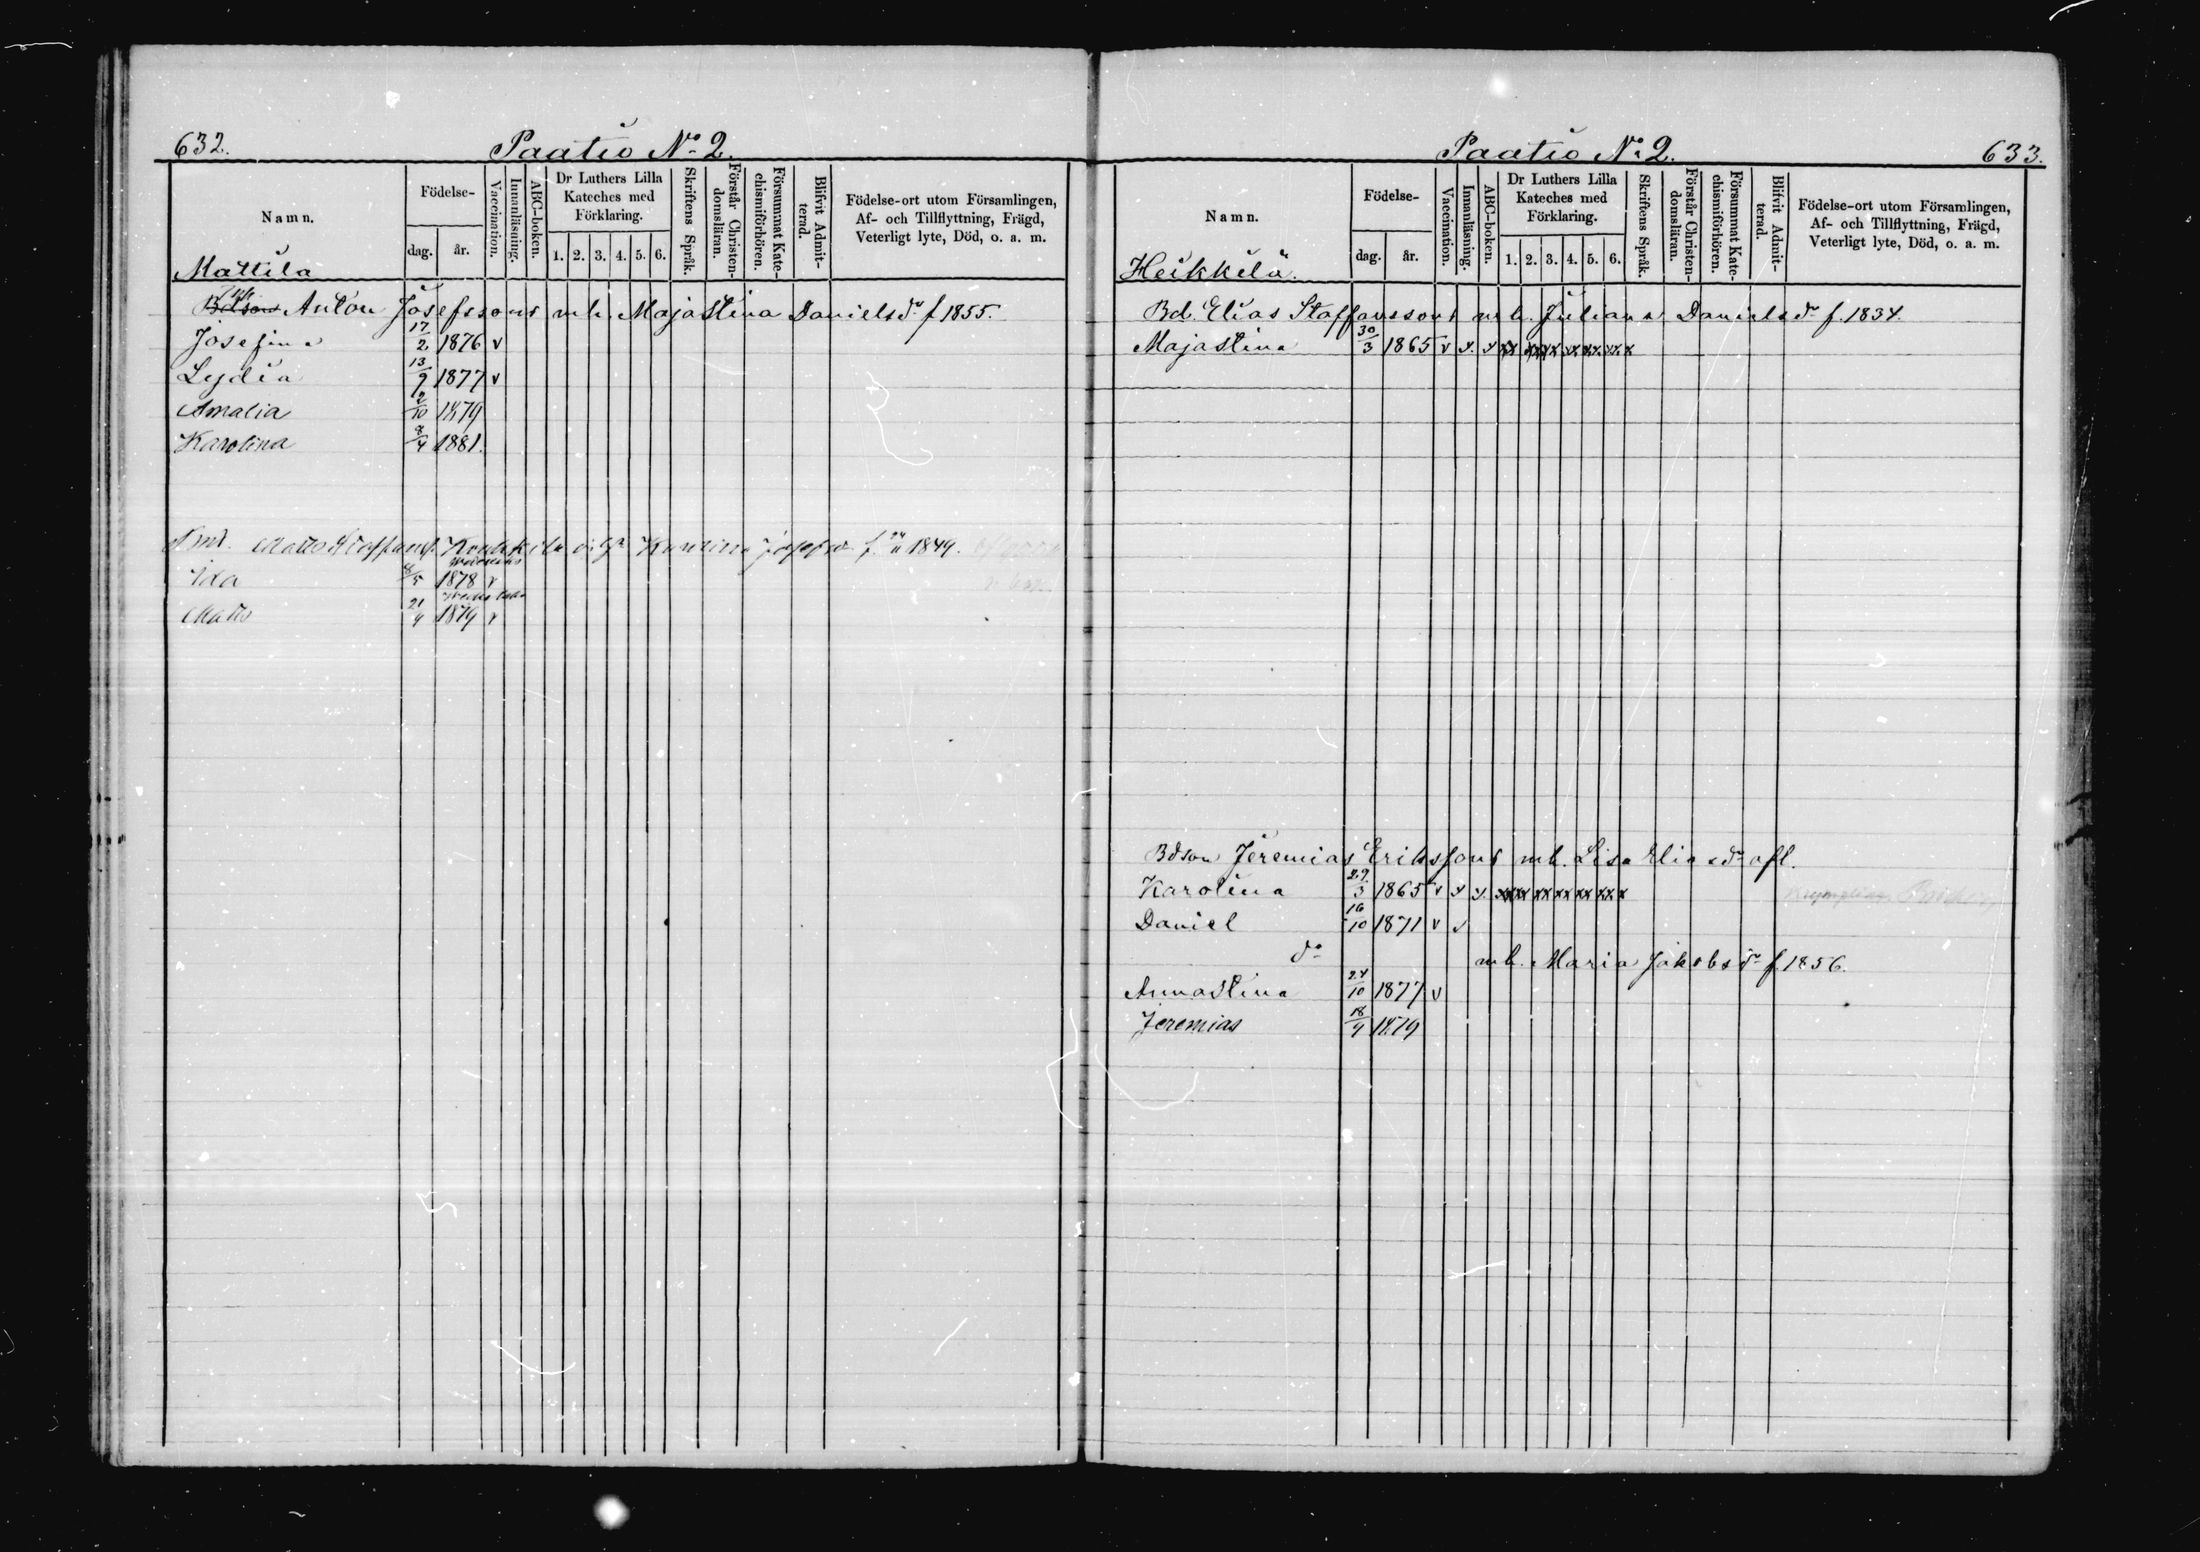 632. Paatio No 2.
Namn. Födelse- dag. år. Vaccination. Innanläsning. ABC-boken. Dr Luthers Lilla Kateches med Förklaring. 1. 2. 3. 4. 5. 6. Skriftens Språk. Förstår Christen-domsläran. Försummat Kate-chismiförhören. Blifvit Admit-terad. Födelse-ort utom Församlingen, Af- och Tillflyttning, Frägd, Veterligt lyte, Död, o. a. m.
Mattila
Bdson Anton Josefssons mh. Majastina Danielsdr f 1855.
Josefina 17/2 1876 v
Lydia 13/9 1877 v
Amalia 2/10 1879
Karolina 8/4 1881.
Matts Staffanss. Josefsdr f. 1849.
Ida 8/5 1878 v
Matts 21/9 1879 v
Paatio No 2. 633.
Namn. Födelse- dag. år. Vaccination. Innanläsning. ABC-boken. Dr Luthers Lilla Kateches med Förklaring. 1. 2. 3. 4. 5. 6. Skriftens Språk. Förstår Christen-domsläran. Försummat Kate-chismiförhören. Blifvit Admit-terad. Födelse-ort utom Församlingen, Af- och Tillflyttning, Frägd, Veterligt lyte, Död, o. a. m.
Heikkilä.
Bd. Elias Staffanssons mh. Juliana Danielsdr f. 1834.
Majastina 30/3 1865 v
Bdson Jeremias Erikssons mh. Lisa Eliasdr afl.
Karolina 29/3 1865 v
Daniel 16/10 1871 v
do mh. Maria Jakobsdr f. 1856.
Annastina 24/10 1877 v
Jeremias 18/9 1879